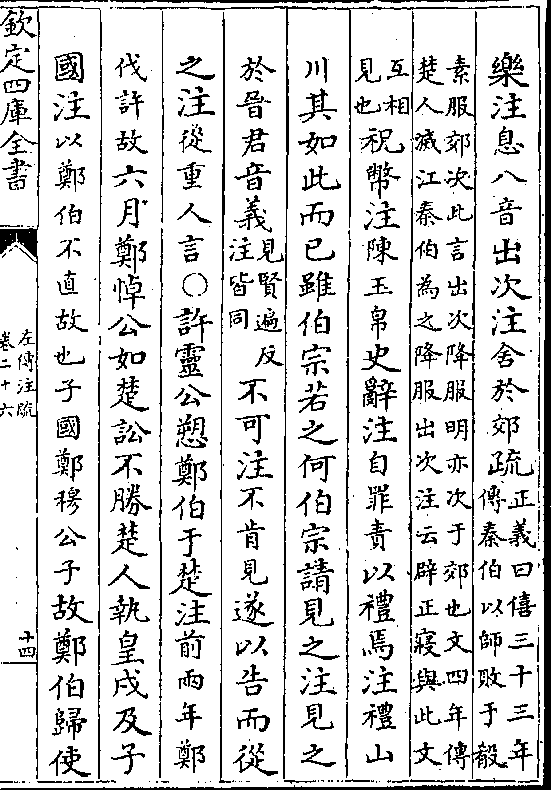 樂注息八音出次注舍於郊疏
正義曰僖三十三年
傳秦伯以師敗于殽
素服郊次此言出次降服明亦次于郊也文四年傳
楚人滅江秦伯為之降服出次注云辟正寢與此文
互相
見也
祝幣注陳玉帛史辭注自罪責以禮焉注禮山
川其如此而已雖伯宗若之何伯宗請見之注見之
於晉君音義
見賢遍反
注皆同
不可注不肯見遂以告而從
之注從重人言○許靈公愬鄭伯于楚注前兩年鄭
伐許故六月鄭悼公如楚訟不勝楚人執皇戌及子
國注以鄭伯不直故也子國鄭穆公子故鄭伯歸使
欽定四庫全書
左傳注疏
卷二十六
十四